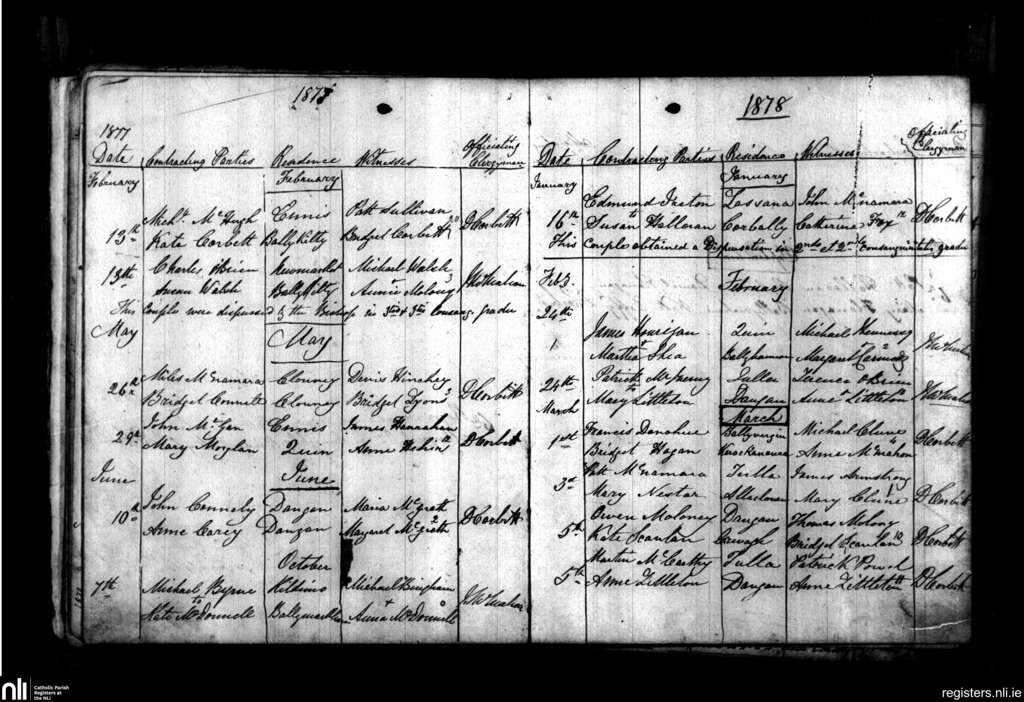 1877
1877
Date Contracting Parties Residence Witnesses Officiating Clergyman
February
February
Michl. McHugh Ennis Patt Sullivan
13th Kate Corbett Ballykilty Bridget Corbett D Corbett
13th Charles OBrien Newmarket Michael Walsh
Susan Walsh Ballykilty Annie Molony
This Couple were dispensed by the Bishop in 3rd & 3rd consang. gradu
May
May
26th Miles McNamara Clooney Denis Hinchey
Bridget Connell Clooney Bridget Lyons D Corbett
29th John Ennis James Hanrahan
Mary Moylan Quin Anne D Corbett
June
June
10th John Connely Dangan Maria McGrath
Anne Carey Dangan Margaret McGrath D Corbett
October
7th Michael Byrne Kildimo Michael Bingham
to
Kate McDonnell Anna McDonnell
1878
Date Contracting Parties Residence Witnesses Officiating Clergyman
January
January
Edmund Ireton Lassana John McNamara
to
16th Susan Halloran Corbally Catherine Fox D Corbett
This Couple obtained a Dispensation in 2ndo et 2ndo consanguinitatis gradu
Feb
February
24th
James Hourigan Quin Michael Hennessy
Martha Shea Margaret
24th Patrick Tulla Terence OBrien
Mary Littleton Dangan Anne Littleton
March
March
1st Francis Donohue Ballyvergin Michael Clune
Bridget Hogan Anne McMahon D Corbett
3rd Patt McNamara Tulla James Armstrong
Mary Nestor Mary Clune D Corbett
5th Owen Moloney Dangan Thomas Molony
Kate Scanlan Bridget Scanlan D Corbett
5th Martin McCarthy Tulla Patrick Power
Anne Littleton Dangan Anne Littleton D Corbett
nli
Catholic Parish
Registers at
the NLI
registers.nli.ie